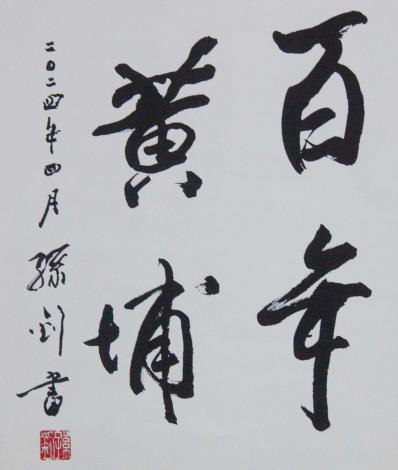 百年
黄埔
二〇二四年四月 孫釗書